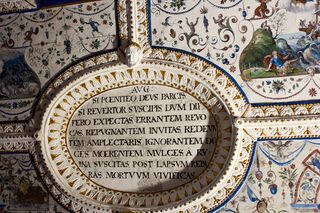 AVG
SI POENITEO DEVS PARCIS
SI REVERTOR SVSCIPIS DVM DIF
FERO EXPECTAS ERRANTEM REVO
CAS REPVGNANTEM INVITAS REDEVN
TEM AMPLECTARIS IGNORANTEM DO
CES MOERENTEM MVLCES A RV
INA SVSCITAS POST LAPSVM REPA
RAS MORTVVM VIVIFICAS